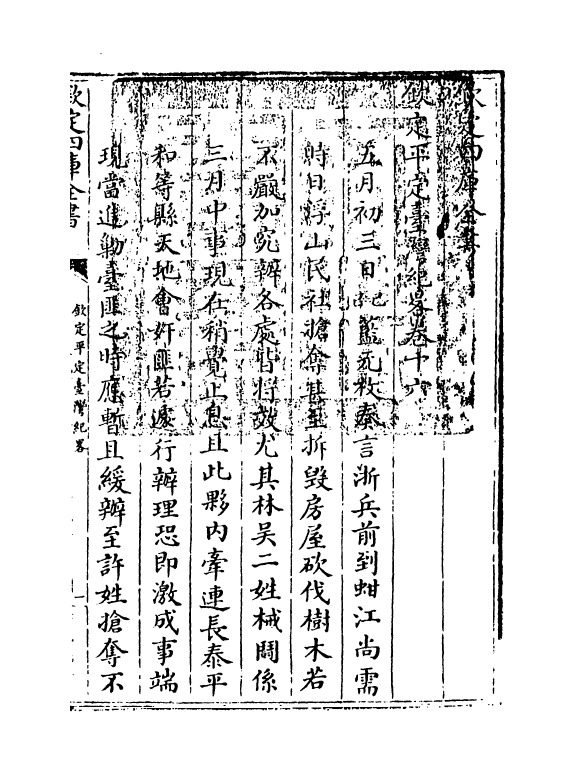 欽定四庫全書
欽定平定臺灣紀畧卷十六
五月初三日己巳藍元枚奏言浙兵前到蚶江尚需
時日浮山民社搶奪甚至拆毀房屋砍伐樹木若
不嚴加究辦各處皆將效尤其林吳二姓械鬪係
三月中事現在稍覺止息且此夥內牽連長泰平
和等縣天地會奸匪若遽行辦理恐即激成事端
現當進勦臺匪之時應暫且緩辦至許姓搶奪不
欽定四庫全書
欽定平定臺灣紀畧
一